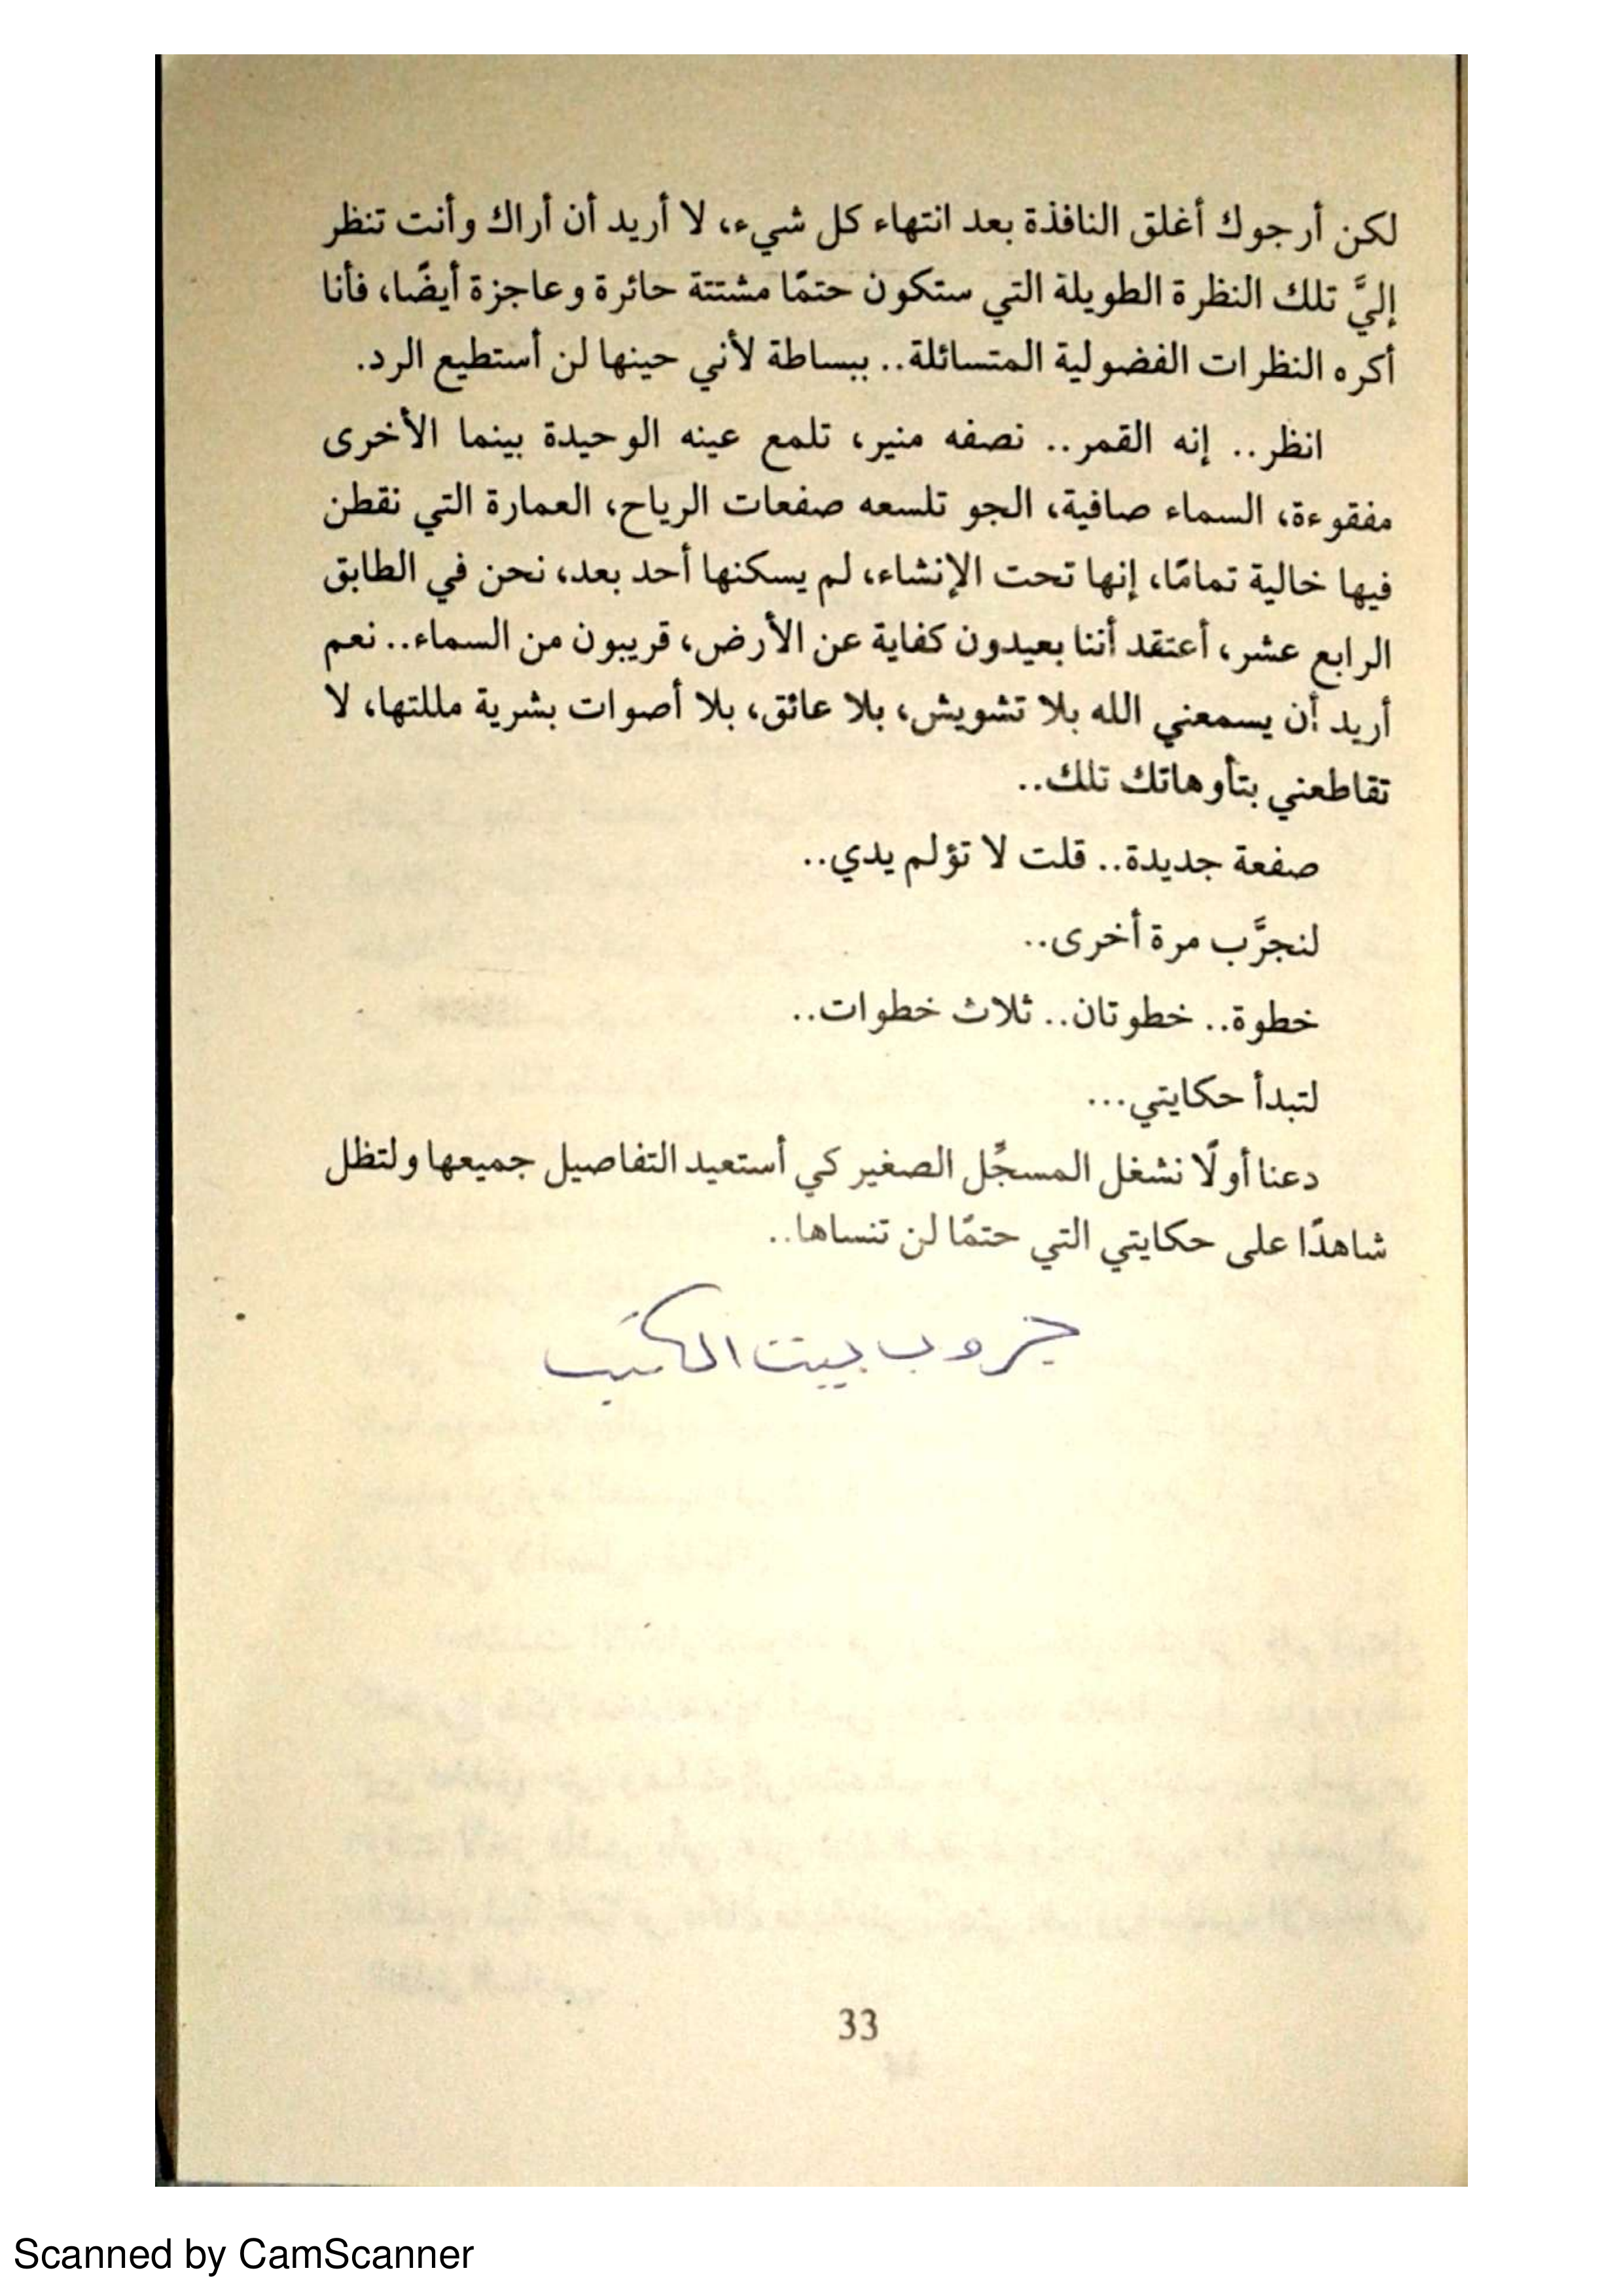 لكن أرجوك أغلق النافذة بعد انتهاء كل شيء، لا أريد أن أراك وأنت تنظر
إليَّ تلك النظرة الطويلة التي ستكون حتمًا مشتتة حائرة وعاجزة أيضًا، فأنا
أكره النظرات الفضولية المتسائلة.. ببساطة لأني حينها لن أستطيع الرد.
انظر.. إنه القمر.. نصفه منير، تلمع عينه الوحيدة بينما الأخرى
مفقوءة، السماء صافية، الجو تلسعه صفعات الرياح، العمارة التي نقطن
فيها خالية تمامًا، إنها تحت الإنشاء، لم يسكنها أحد بعد، نحن في الطابق
الرابع عشر، أعتقد أننا بعيدون كفاية عن الأرض، قريبون من السماء.. نعم
أريد أن يسمعني الله بلا تشويش، بلا عائق، بلا أصوات بشرية مللتها، لا
تقاطعني بتأوهاتك تلك..
صفعة جديدة.. قلت لا تؤلم يدي..
لنجرَّب مرة أخرى..
خطوة.. خطوتان.. ثلاث خطوات..
لتبدأ حكايتي...
دعنا أولًا نشغل المسجَّل الصغير كي أستعيد التفاصيل جميعها ولتظل
شاهدًا على حكايتي التي حتمًا لن تنساها..
جروب بيت الكتب
33
Scanned by CamScanner